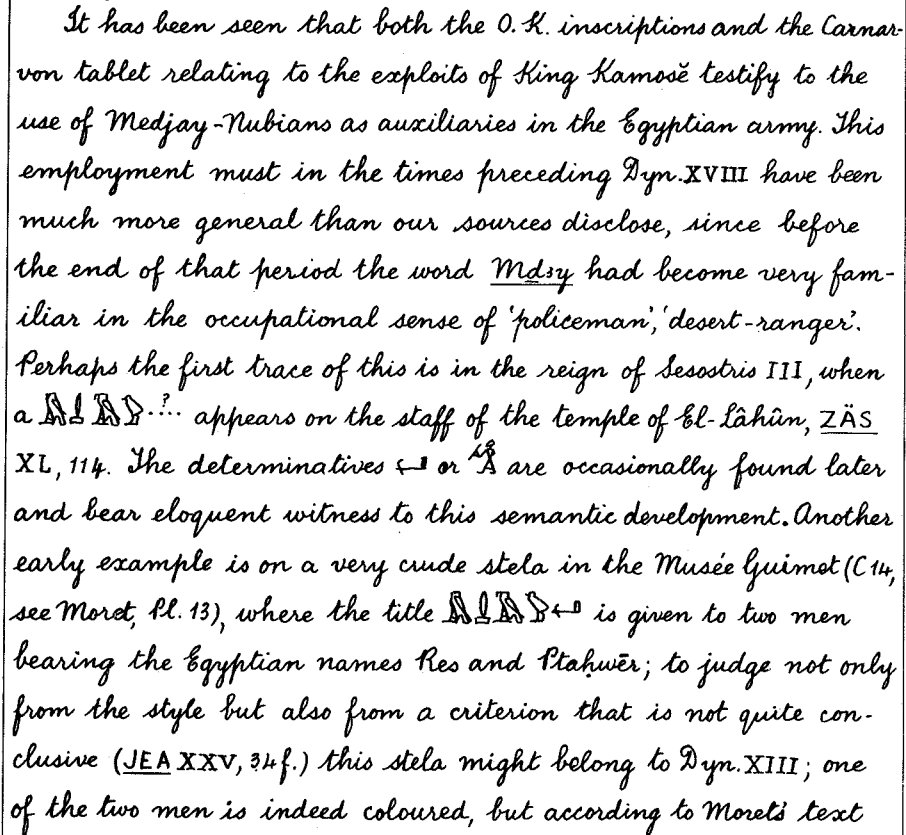 It has been seen that both the O. K. inscriptions and the Carnar-
von tablet relating to the exploits of King Kamosĕ testify to the
use of Medjay-Nubians as auxiliaries in the Egyptian army. This
employment must in the times preceding Dyn. XVIII have been
much more general than our sources disclose, since before
the end of that period the word Mḏꜣy had become very fam-
iliar in the occupational sense of 'policeman', 'desert-ranger'.
Perhaps the first trace of this is in the reign of Sesostris III, when
a appears on the staff of the temple of El-Lâhûn, ZÄS
XL, 114. The determinatives or are occasionally found later
and bear eloquent witness to this semantic development. Another
early example is on a very crude stela in the Musée Guimet (C 14,
see Moret, Pl. 13), where the title is given to two men
bearing the Egyptian names Res and Ptaḥwēr; to judge not only
from the style but also from a criterion that is not quite con-
clusive (JEA XXV, 34 f.) this stela might belong to Dyn. XIII; one
of the two men is indeed coloured, but according to Moret's text